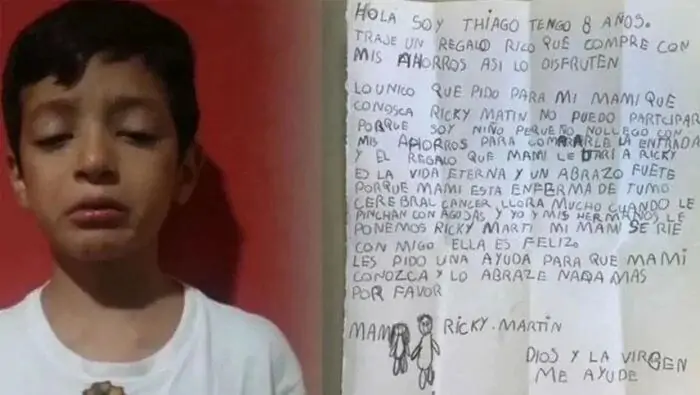 HOLA SOY THIAGO TENGO 8 AÑOS.
TRAJE UN REGALO RICO QUE COMPRE CON
MIS AHORROS ASI LO DISFRUTEN
LO UNICO QUE PIDO PARA MI MAMI QUE
CONOSCA RICKY MATIN NO PUEDO PARTCIPAR
PORQUE SOY NIÑO PEQUEÑO NOLLEGO CON
MIS AHORROS PARA COMPRARLE LA ENTRADA
Y EL REGALO QUE MAMI LE DARI A RICKY
ES LA VIDA ETERNA Y UN ABRAZO FUETE
PORQUE MAMI ESTA ENFERMA DE TUMO
CEREBRAL CANCER, LLORA MUCHO CUANDO LE
PINCHAN CON AGOJAS Y YO Y MIS HERMANOS LE
PONEMOS RICKY MARTI MI MAMI SE RIE
CON MIGO ELLA ES FELIZ.
LES PIDO UNA AYUDA PARA QUE MAMI
CONOZCA Y LO ABRAZE NADA MAS
POR FAVOR
MAMI RICKY.MARTIN
DIOS Y LA VIRGEN
ME AYUDE